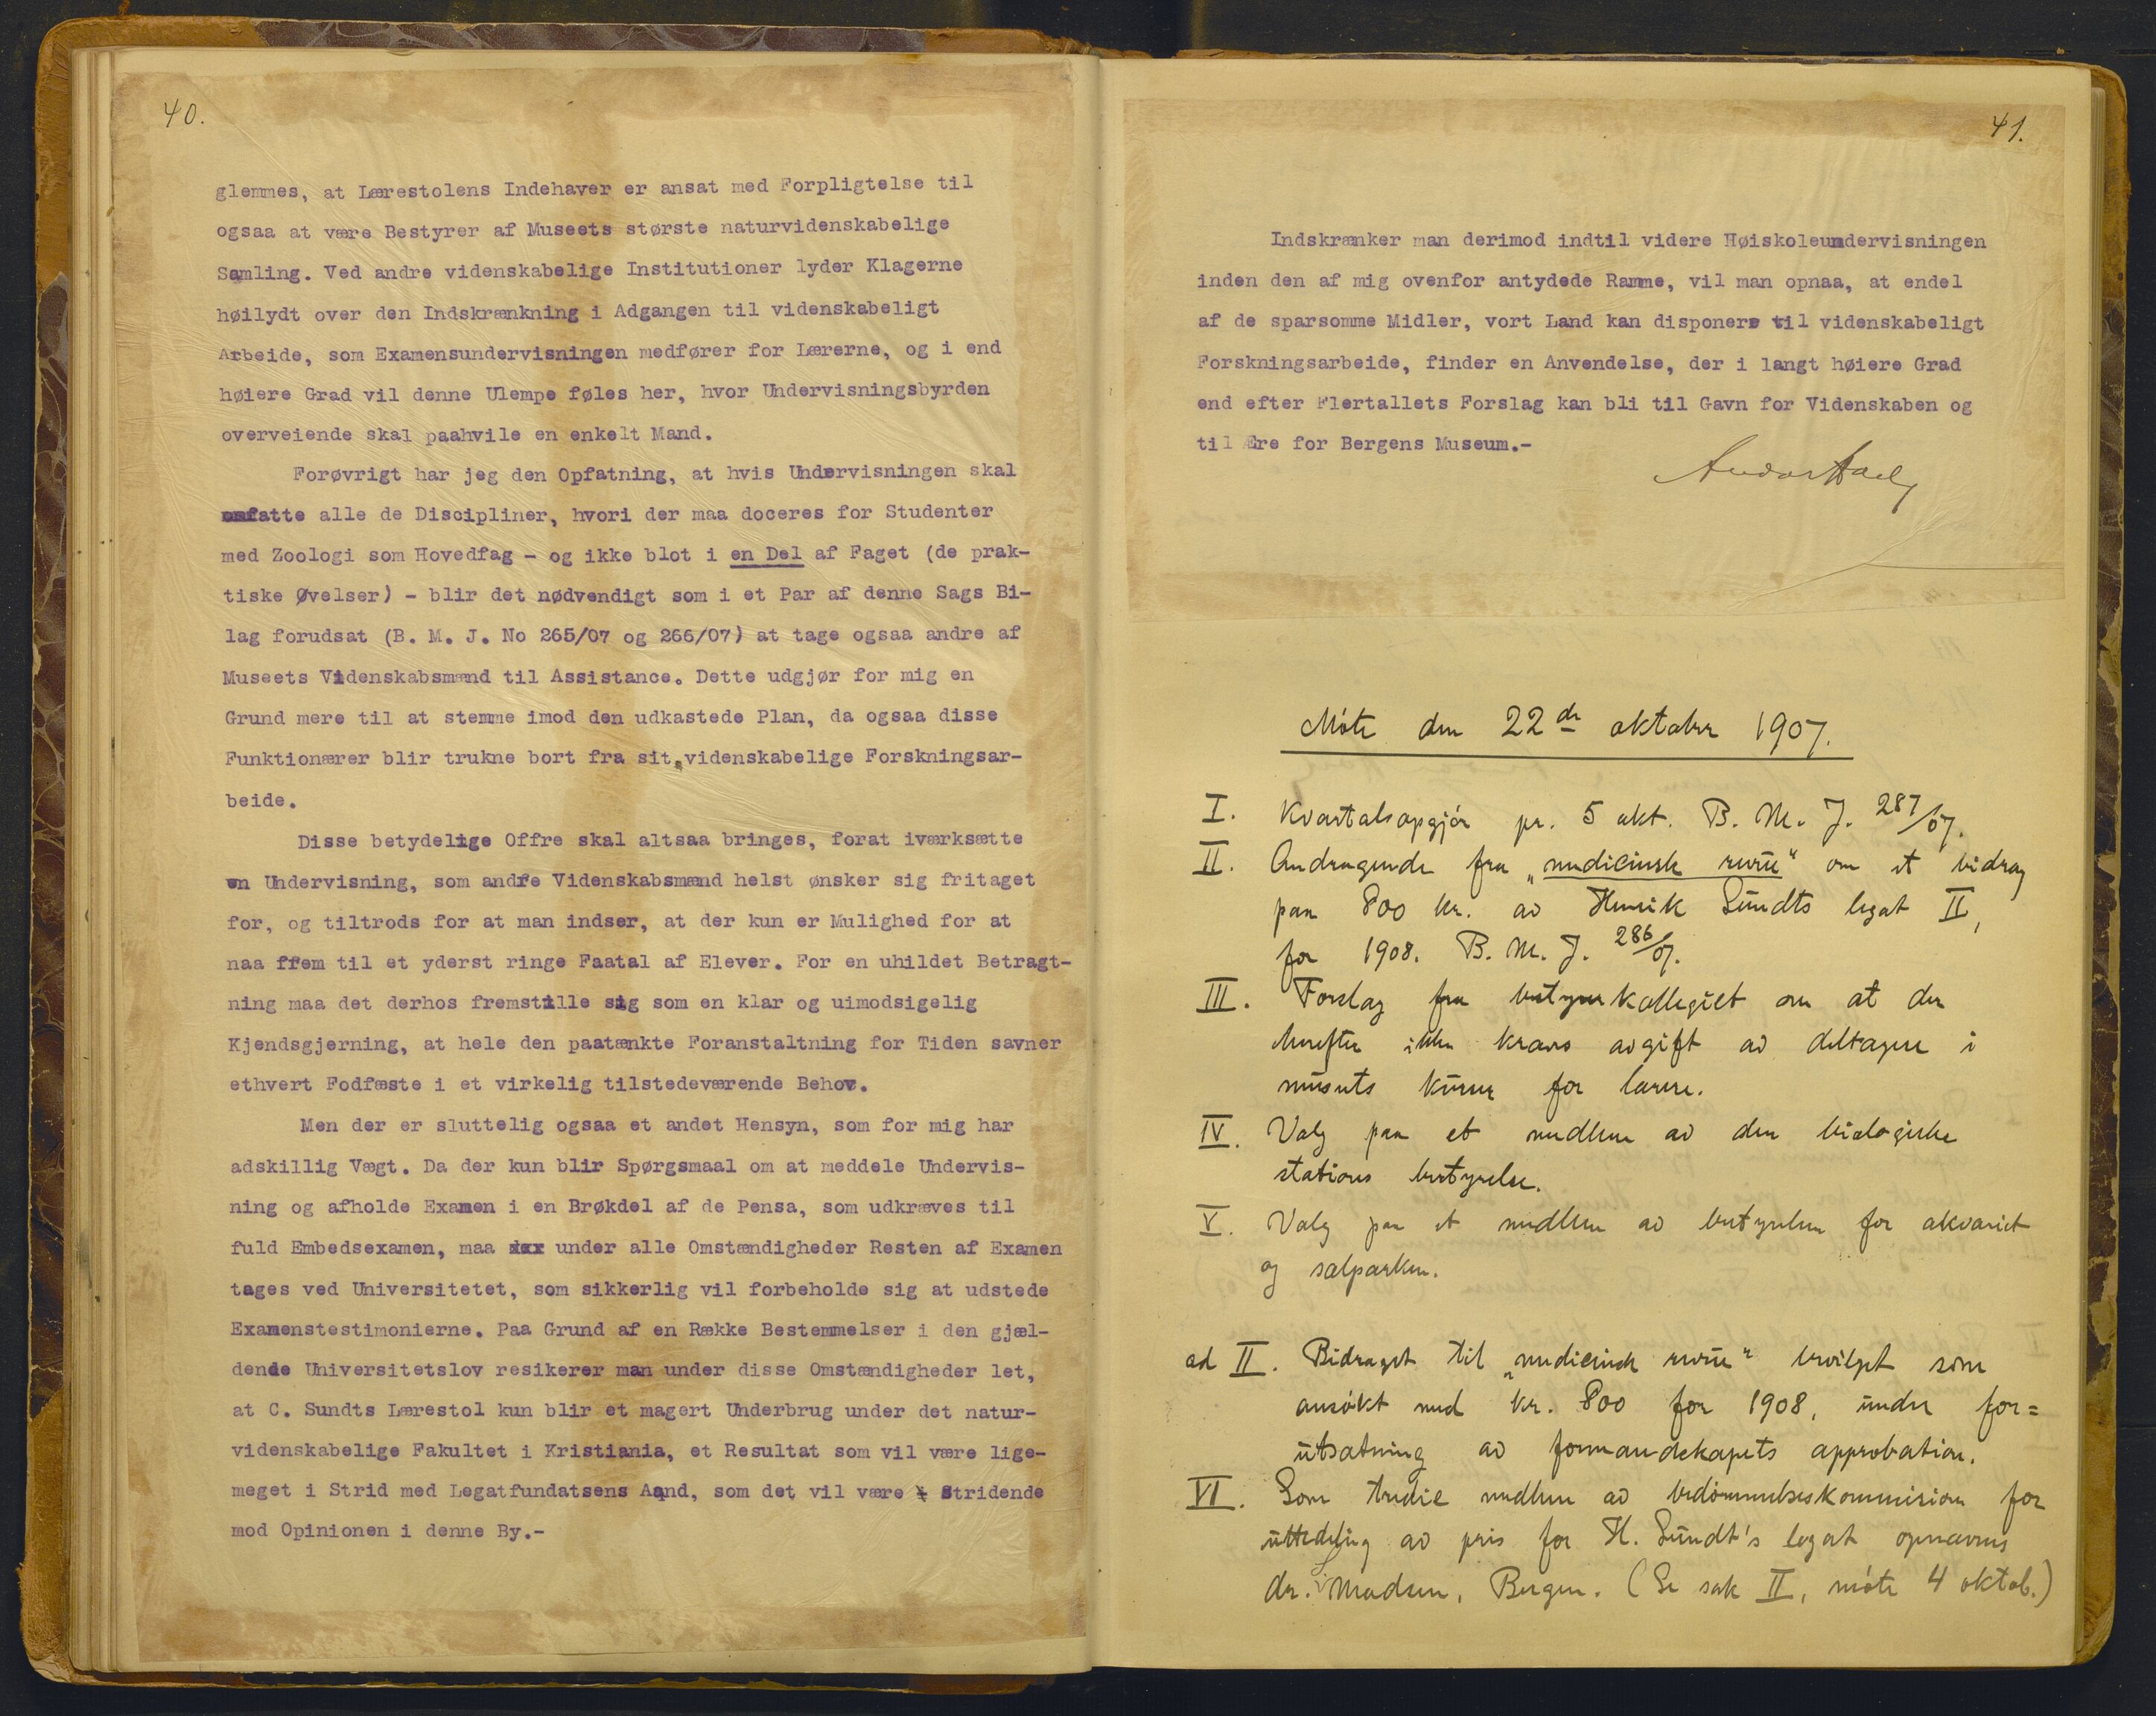 40.
glemmes, at Lærestolens Indehaver er ansat med Forpligtelse til
ogsaa at være Bestyrer af Museets største naturvidenskabelige
Samling. Ved andre videnskabelige Institutioner lyder Klagerne
høilydt over den Indskrænkning i Adgangen til videnskabeligt
Arbeide, som Examensundervisningen medfører for Lærerne, og i end
høiere Grad vil denne Ulempe føles her, hvor Undervisningsbyrden
overveiende skal paahvile en enkelt Mand.
Forøvrigt har jeg den Opfatning, at hvis Undervisningen skal
omfatte alle de Discipliner, hvori der maa doceres for Studenter
med Zoologi som Hovedfag - og ikke blot i en Del af Faget (de prak-
tiske Øvelser) - blir det nødvendigt som i et Par af denne Sags Bi-
lag forudsat (B. M. J. No 265/07 og 266/07) at tage ogsaa andre af
Museets Videnskabsmænd til Assistance. Dette udgjør for mig en
Grund mere til at stemme imod den udkastede Plan, da ogsaa disse
Funktionærer blir trukne bort fra sit videnskabelige Forskningsar-
beide.
Disse betydelige Offre skal altsaa bringes, forat iværksætte
en Undervisning, som andre Videnskabsmænd helst ønsker sig fritaget
for, og tiltrods for at man indser, at der kun er Mulighed for at
naa frem til et yderst ringe Faatal af Elever. For en uhildet Betragt-
ning maa det derhos fremstille sig som en klar og uimodsigelig
Kjendsgjerning, at hele den paatænkte Foranstaltning for Tiden savner
ethvert Fodfæste i et virkelig tilstedeværende Behov.
Men der er sluttelig ogsaa et andet Hensyn, som for mig har
adskillig Vægt. Da der kun blir Spørgsmaal om at meddele Undervis-
ning og afholde Examen i en Brøkdel af de Pensa, som udkræves til
fuld Embedsexamen, maa under alle Omstændigheder Resten af Examen
tages ved Universitetet, som sikkerlig vil forbeholde sig at udstede
Examenstestimonierne. Paa Grund af en Række Bestemmelser i den gjæl-
dende Universitetslov resikerer man under disse Omstændigheder let,
at C. Sundts Lærestol kun blir et magert Underbrug under det natur-
videnskabelige Fakultet i Kristiania, et Resultat som vil være lige-
meget i Strid med Legatfundatsens Aand, som det vil være stridende
mod Opinionen i denne By.-
41.
Indskrænker man derimod indtil videre Høiskoleundervisningen
inden den af mig ovenfor antydede Ramme, vil man opnaa, at endel
af de sparsomme Midler, vort Land kan disponere til videnskabeligt
Forskningsarbeide, finder en Anvendelse, der i langt høiere Grad
end efter Flertallets Forslag kan bli til Gavn for Videnskaben og
til Ære for Bergens Museum.-
Møte den 22de oktober 1907.
I. Kvartalsopgjør pr. 5 okt. B. M. J. 287/07.
II. Andragende fra „medicinsk revue" om et bidrag
paa 800 kr. av Henrik Sundts legat II,
for 1908. B. M. J. 286/07.
III. Forslag fra bestyrerkollegiet om at der
herefter ikke kræves avgift av deltagere i
museets kurser for lærere.
IV. Valg paa et medlem av den biologiske
stations bestyrelse.
V. Valg paa et medlem av bestyrelsen for akvariet
og sælparken.
ad II. Bidraget til „medicinsk revue" bevilget som
ansøkt med kr. 800 for 1908, under for=
utsætning av formandskapets approbation.
VI. Som tredie medlem av bedømmelseskommision for
utdeling av pris for H. Sundt's legat opnævnes
dr. Madsen, Bergen. (Se sak II, møte 4 oktob.)